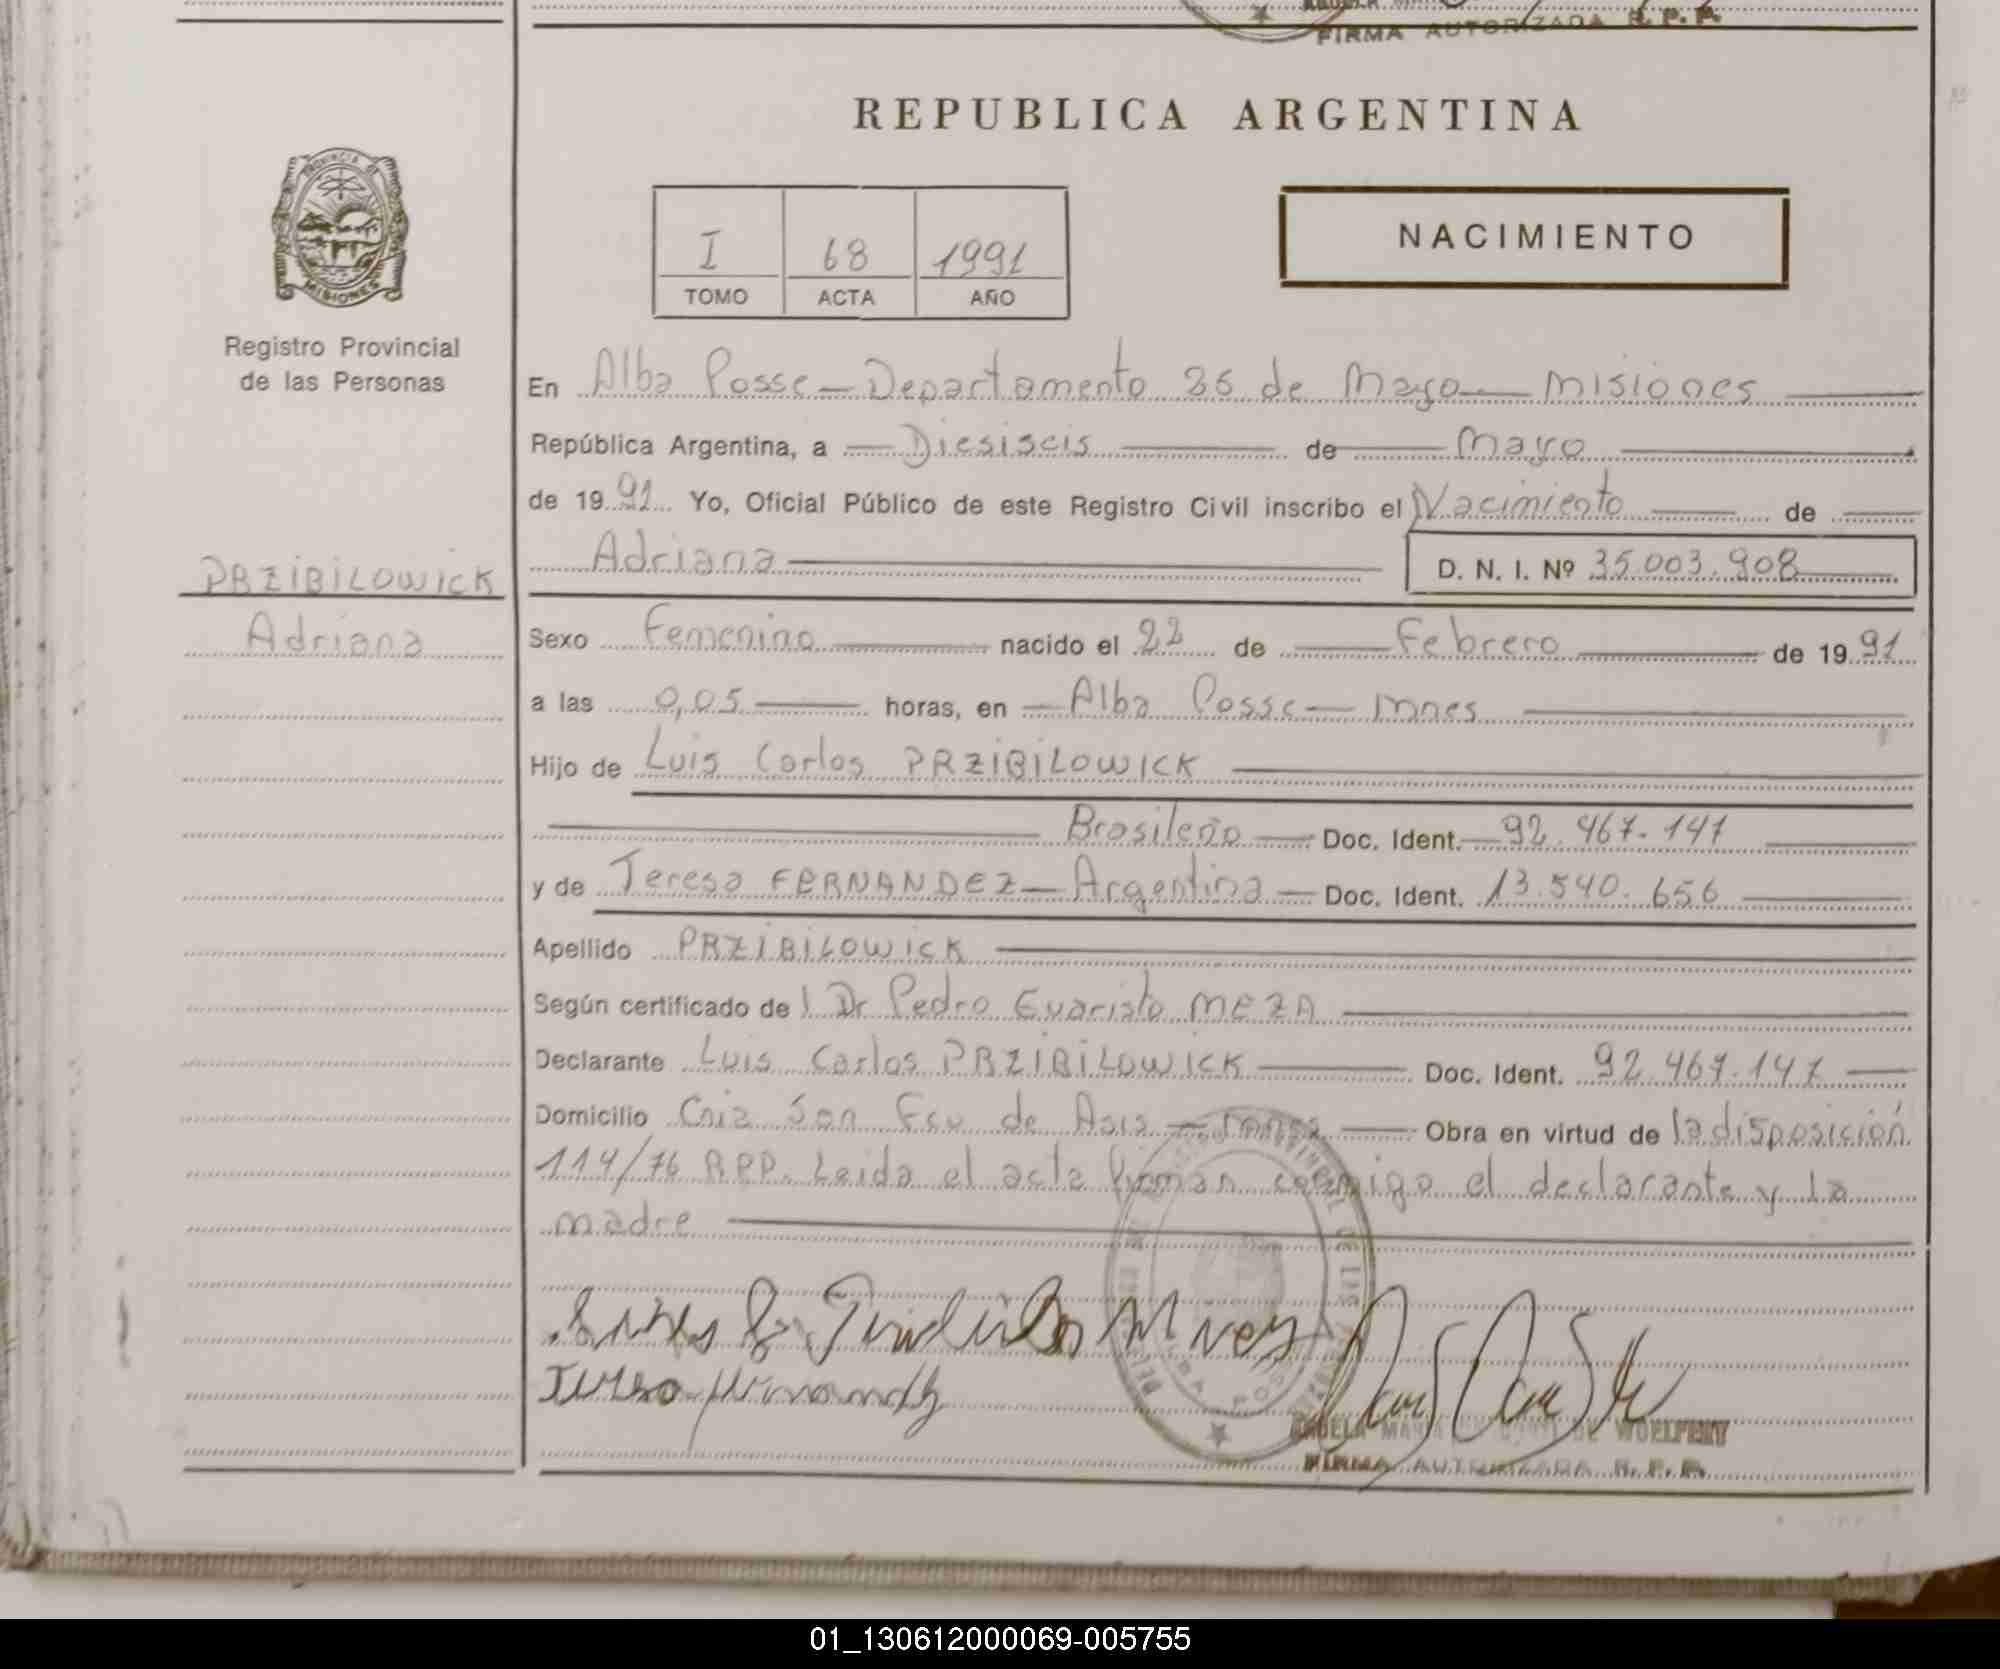 FIRMA AUTORIZADA R. P. P.
REPUBLICA ARGENTINA
PROVINCIA DE
MISIONES
Registro Provincial
de las Personas
I 68 1991
TOMO ACTA AÑO
NACIMIENTO
PRZIBILOWICK
Adriana
En Alba Posse — Departamento 25 de Mayo — Misiones
República Argentina, a — Diesiseis — de — Mayo
de 1991 Yo, Oficial Público de este Registro Civil inscribo el Nacimiento — de
Adriana — D. N. I. Nº 35.003.908
Sexo Femenino — nacido el 22 de — Febrero — de 1991
a las 0,05 — horas, en — Alba Posse — Mnes
Hijo de Luis Carlos PRZIBILOWICK
Brasileño — Doc. Ident. — 92.467.147
y de Teresa FERNANDEZ — Argentina — Doc. Ident. 13.540.656
Apellido PRZIBILOWICK
Según certificado de l Dr Pedro Evaristo MEZA
Declarante Luis Carlos PRZIBILOWICK — Doc. Ident. 92.467.147
Domicilio San Fco de Asis — Mnes — Obra en virtud de la disposición
114/76 RPP. Leida el acta firman conmigo el declarante y la
madre
FIRMA AUTORIZADA R. P. P.
01_130612000069-005755